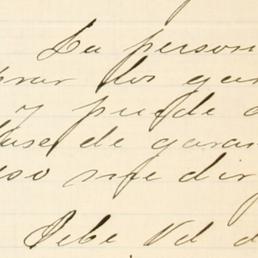 La person
prar los gan
y puede d
ase de garan
eso me dir
Debe Vd d